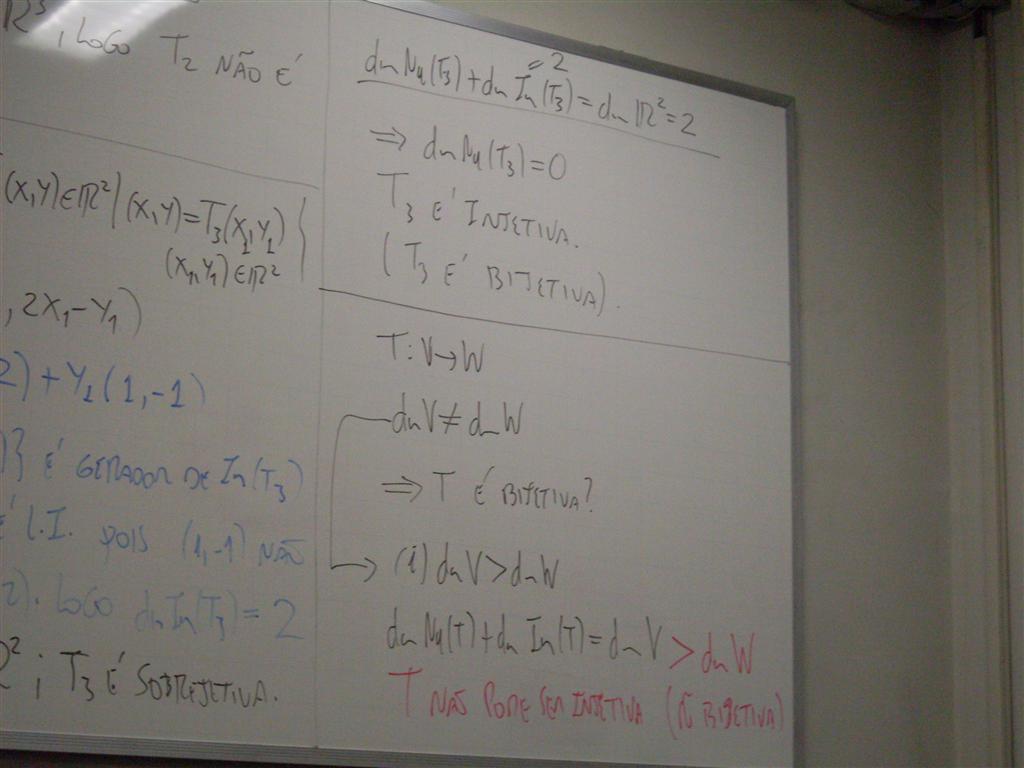 ℝ³, LOGO T₂ NÃO É
(X,Y)∈ℝ² | (X,Y)=T₃(X₁,Y₁)}
(X₁,Y₁)∈ℝ²
, 2X₁-Y₁)
2)+Y₁(1,-1)
)} É GERADOR DE Im(T₃)
É L.I. POIS (1,-1) NÃO
2). LOGO dim Im(T₃)=2
ℝ² ; T₃ É SOBREJETIVA.
=2
dim Nu(T₃)+dim Im(T₃)=dim ℝ²=2
⇒ dim Nu(T₃)=0
T₃ É INJETIVA.
(T₃ É BIJETIVA).
T:V→W
dim V≠dim W
⇒ T É BIJETIVA?
(i) dim V>dim W
dim Nu(T)+dim Im(T)=dim V>dim W
T NÃO PODE SER INJETIVA (Ñ BIJETIVA)